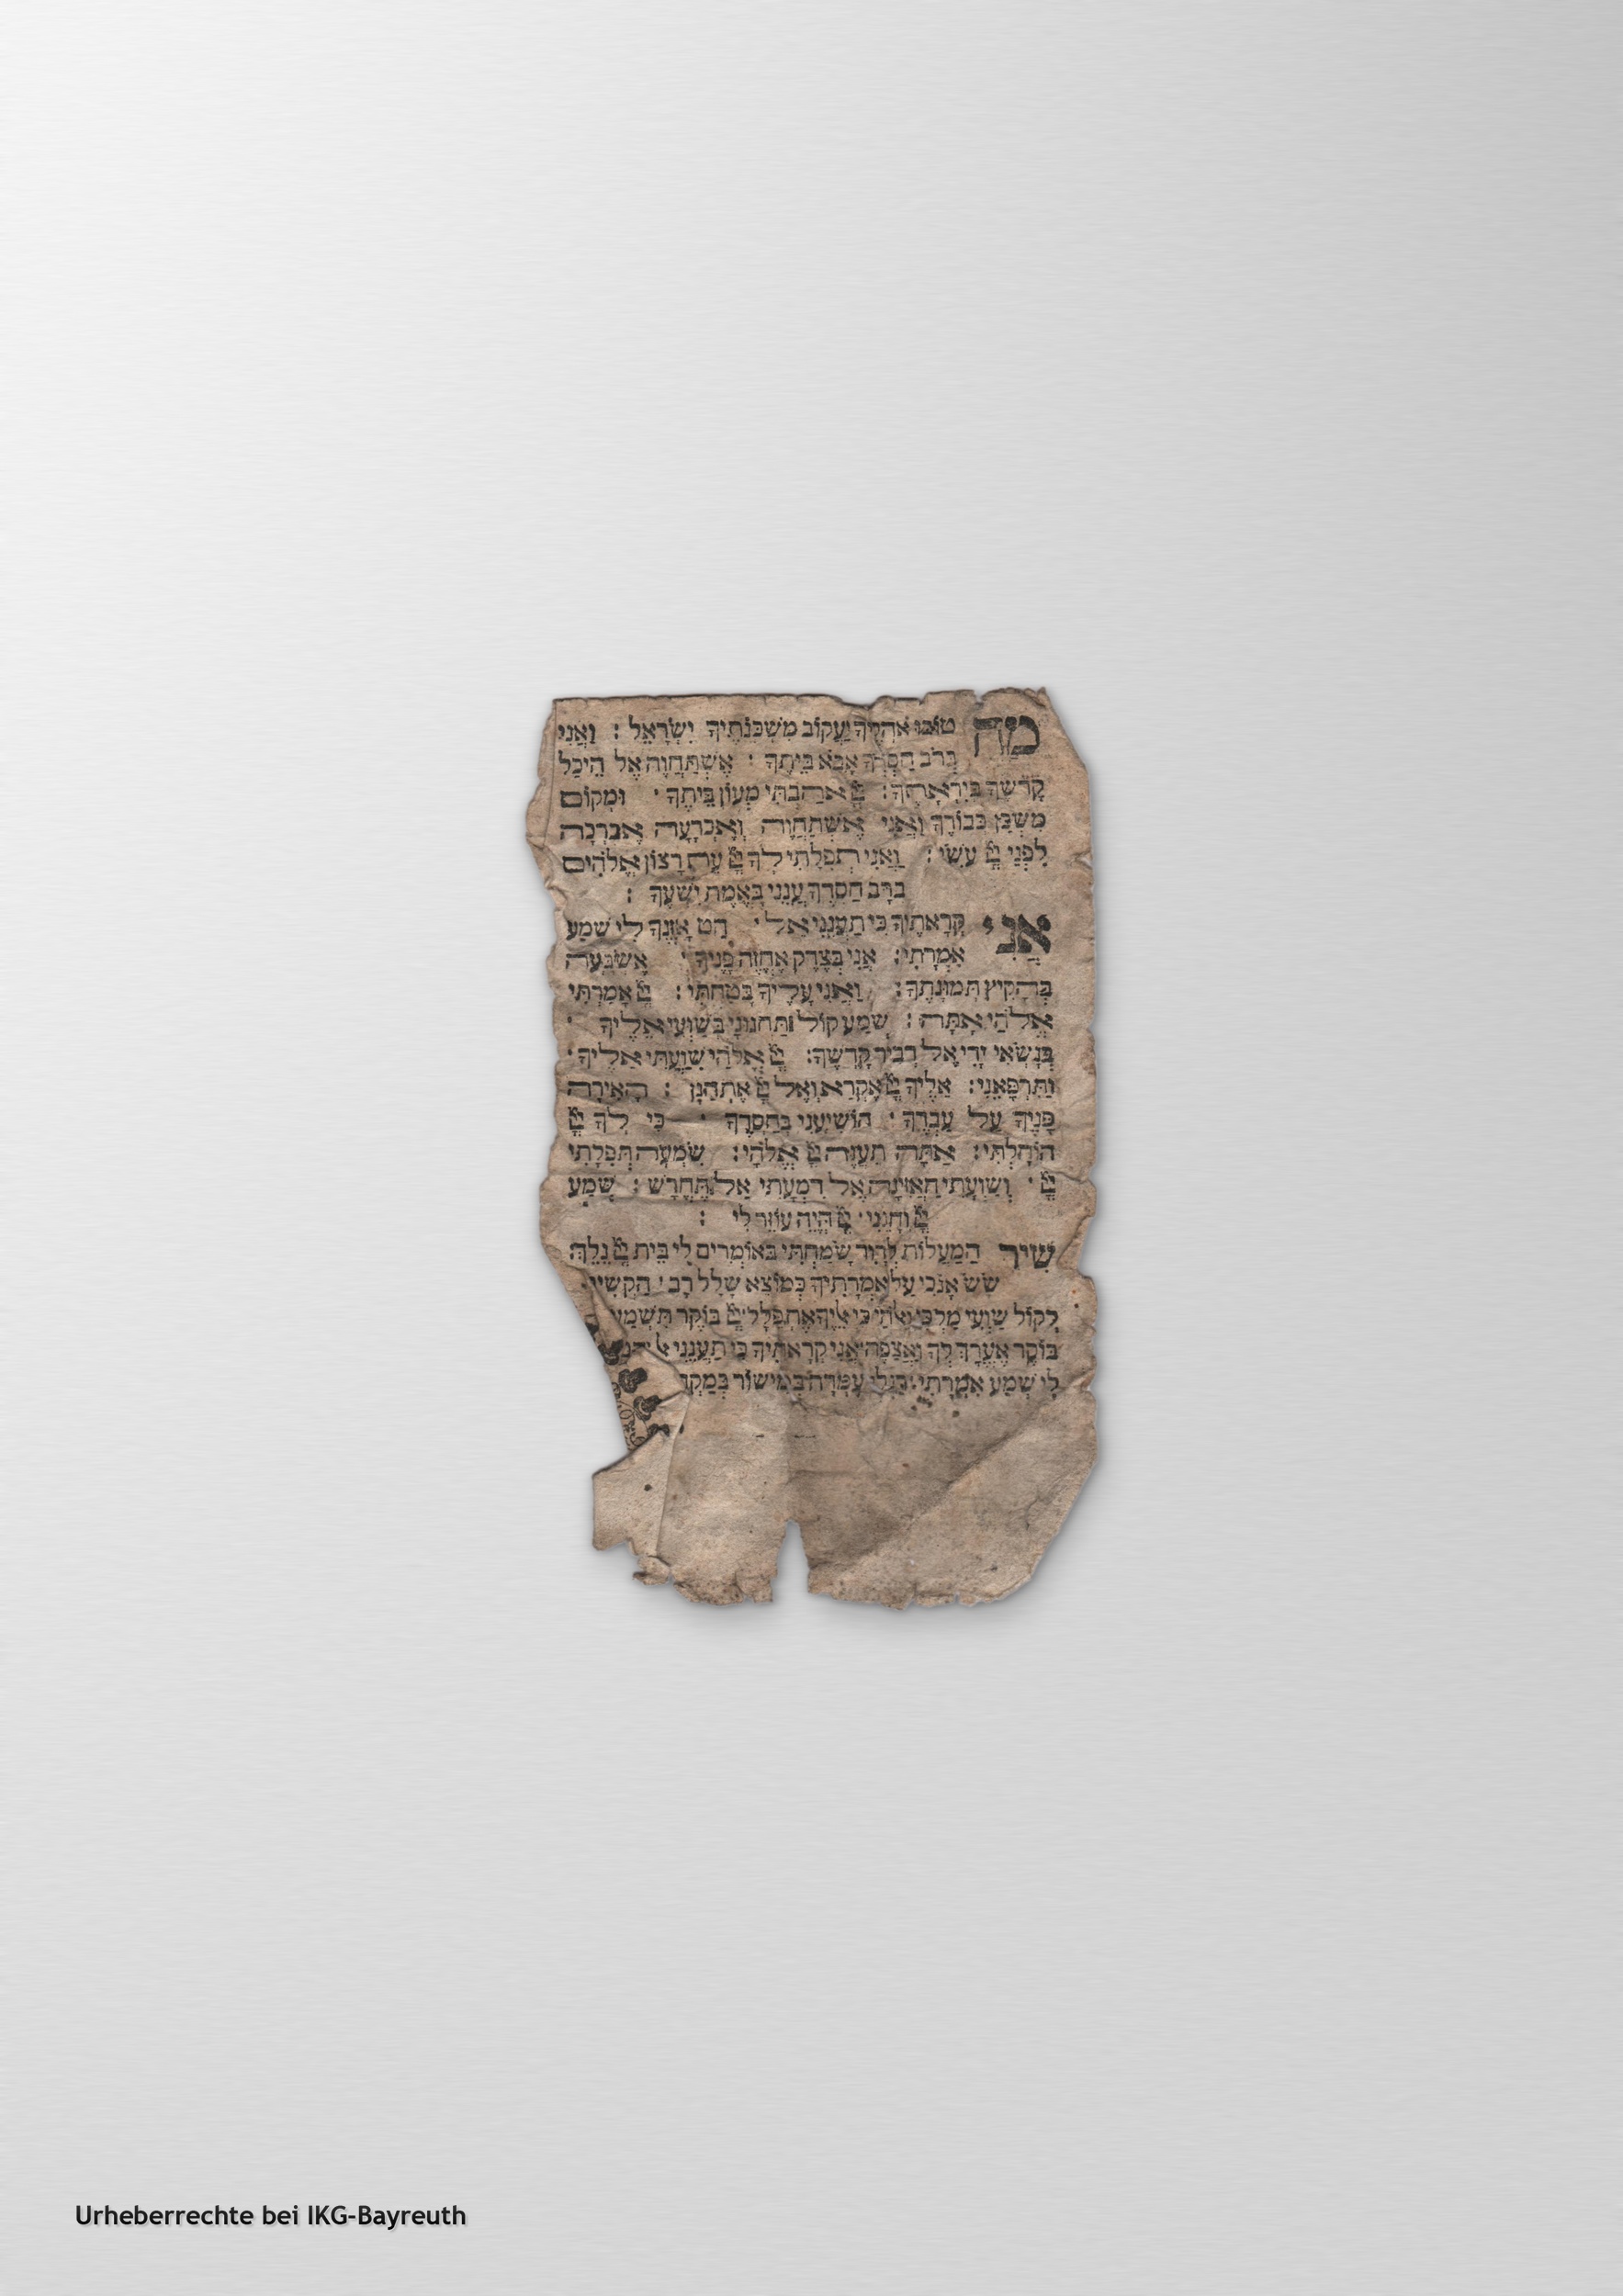 מַה טוֹבוּ אֹהָלֶיךָ יַעֲקוֹב מִשְׁכְּנוֹתֶיךָ יִשְׂרָאֵל : וַאֲנִי
בְּרֹב חַסְדְּךָ אָבֹא בֵיתֶךָ · אֶשְׁתַּחֲוֶה אֶל הֵיכַל
קָדְשְׁךָ בְּיִרְאָתֶךָ : יְיָ אָהַבְתִּי מְעוֹן בֵּיתֶךָ · וּמְקוֹם
מִשְׁכַּן כְּבוֹדֶךָ וַאֲנִי אֶשְׁתַּחֲוֶה וְאֶכְרָעָה אֶבְרְכָה
לִפְנֵי יְיָ עֹשִׂי : וַאֲנִי תְפִלָּתִי לְךָ יְיָ עֵת רָצוֹן אֱלֹהִים
בְּרָב חַסְדֶּךָ עֲנֵנִי בֶּאֱמֶת יִשְׁעֶךָ :
אֲנִי קְרָאתִיךָ כִּי תַעֲנֵנִי אֵל · הַט אָזְנְךָ לִי שְׁמַע
אִמְרָתִי : אֲנִי בְּצֶדֶק אֶחֱזֶה פָנֶיךָ · אֶשְׂבְּעָה
בְּהָקִיץ תְּמוּנָתֶךָ : וַאֲנִי עָלֶיךָ בָּטַחְתִּי : יְיָ אָמַרְתִּי
אֱלֹהַי אַתָּה : שְׁמַע קוֹל תַּחֲנוּנַי בְּשַׁוְּעִי אֵלֶיךָ ·
בְּנָשְׂאִי יָדַי אֶל דְּבִיר קָדְשֶׁךָ : יְיָ אֱלֹהַי שִׁוַּעְתִּי אֵלֶיךָ ·
וַתִּרְפָּאֵנִי : אֵלֶיךָ יְיָ אֶקְרָא וְאֶל יְיָ אֶתְחַנָּן : הָאִירָה
פָנֶיךָ עַל עַבְדֶּךָ · הוֹשִׁיעֵנִי בְחַסְדֶּךָ · כִּי לְךָ יְיָ
הוֹחָלְתִּי : אַתָּה תַעֲנֶה יְיָ אֱלֹהָי : שִׁמְעָה תְּפִלָּתִי
יְיָ · וְשַׁוְעָתִי הַאֲזִינָה אֶל דִּמְעָתִי אַל תֶּחֱרַשׁ : שְׁמַע
יְיָ וְחָנֵּנִי · יְיָ הֱיֵה עוֹזֵר לִי :
שִׁיר הַמַּעֲלוֹת לְדָוִד שָׂמַחְתִּי בְּאוֹמְרִים לִי בֵּית יְיָ נֵלֵךְ :
שָׂשׂ אָנֹכִי עַל אִמְרָתֶיךָ כְּמוֹצֵא שָׁלָל רָב : הַקְשִׁי
לְקוֹל שַׁוְעִי מַלְכִּי וֵאלֹהַי כִּי אֵלֶיךָ אֶתְפַּלָּל יְיָ בּוֹקֶר תִּשְׁמַע
בּוֹקֶר אֶעֱרָךְ לְךָ וַאֲצַפֶּה אֲנִי קְרָאתִיךָ כִּי תַעֲנֵנִי
לִי שְׁמַע אִמְרָתִי רַגְלִי עָמְדָה בְמִישׁוֹר בְּמַקְהֵ
Urheberrechte bei IKG-Bayreuth